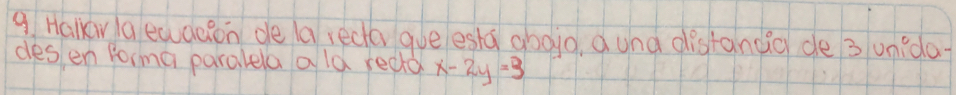 9. Hallar la ecuación de la recta que está abajo, a una distancia de 3 unida-
des, en forma paralela a la recta x - 2y = 3